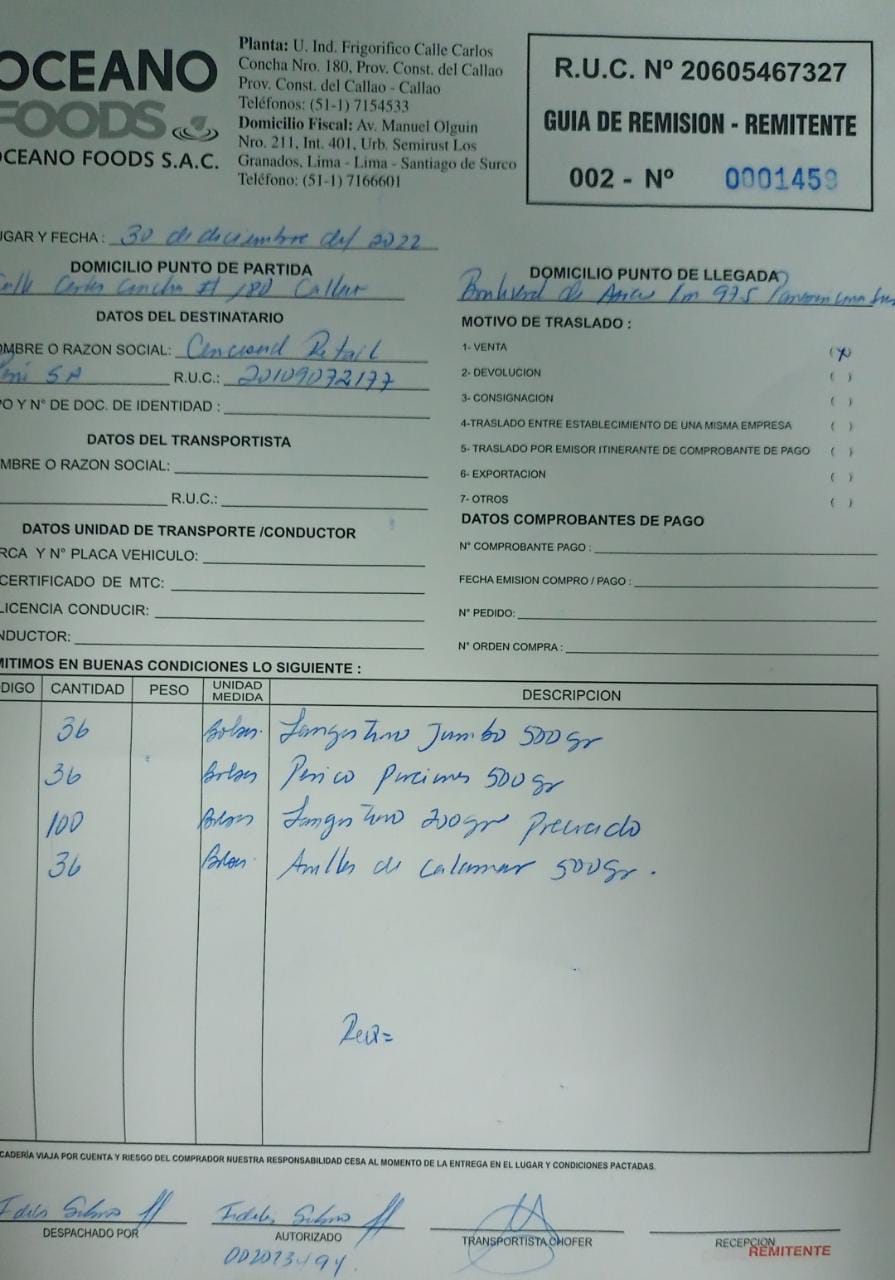 OCEANO
FOODS
OCEANO FOODS S.A.C.
Planta: U. Ind. Frigorifico Calle Carlos
Concha Nro. 180, Prov. Const. del Callao
Prov. Const. del Callao - Callao
Teléfonos: (51-1) 7154533
Domicilio Fiscal: Av. Manuel Olguin
Nro. 211, Int. 401, Urb. Semirust Los
Granados, Lima - Lima - Santiago de Surco
Teléfono: (51-1) 7166601
R.U.C. Nº 20605467327
GUIA DE REMISION - REMITENTE
002 - Nº 0001459
UGAR Y FECHA : 30 de diciembre del 2022
DOMICILIO PUNTO DE PARTIDA
Calle Carlos Concha # 180 Callao
DOMICILIO PUNTO DE LLEGADA
de km 975
DATOS DEL DESTINATARIO
OMBRE O RAZON SOCIAL: Cencosud Retail
SA R.U.C.: 20109072177
PO Y N° DE DOC. DE IDENTIDAD :
DATOS DEL TRANSPORTISTA
MBRE O RAZON SOCIAL:
R.U.C.:
DATOS UNIDAD DE TRANSPORTE /CONDUCTOR
RCA Y N° PLACA VEHICULO:
CERTIFICADO DE MTC:
LICENCIA CONDUCIR:
NDUCTOR:
MOTIVO DE TRASLADO :
1- VENTA (x)
2- DEVOLUCION ( )
3- CONSIGNACION ( )
4-TRASLADO ENTRE ESTABLECIMIENTO DE UNA MISMA EMPRESA ( )
5- TRASLADO POR EMISOR ITINERANTE DE COMPROBANTE DE PAGO ( )
6- EXPORTACION ( )
7- OTROS ( )
DATOS COMPROBANTES DE PAGO
N° COMPROBANTE PAGO :
FECHA EMISION COMPRO / PAGO :
N° PEDIDO:
N° ORDEN COMPRA :
MITIMOS EN BUENAS CONDICIONES LO SIGUIENTE :
DIGO CANTIDAD PESO UNIDAD MEDIDA DESCRIPCION
36 Bolsas Langostino Jumbo 500 gr
36 Bolsas Perico Porciones 500 gr
100 Bolsas Langostino 200gr Precocido
36 Bolsas Anillos de Calamar 500gr.
CADERÍA VIAJA POR CUENTA Y RIESGO DEL COMPRADOR NUESTRA RESPONSABILIDAD CESA AL MOMENTO DE LA ENTREGA EN EL LUGAR Y CONDICIONES PACTADAS.
DESPACHADO POR
AUTORIZADO
TRANSPORTISTA CHOFER
RECEPCION
REMITENTE